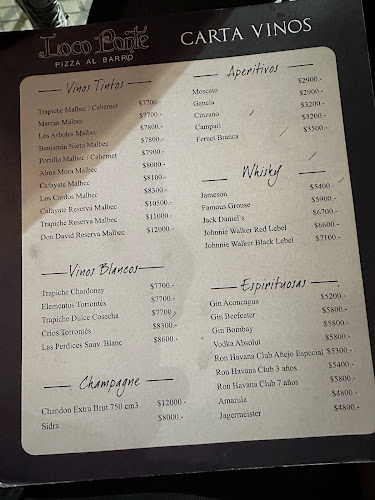 Loco Ponte
PIZZA AL BARRO
CARTA VINOS
Vinos Tintos
Trapiche Malbec / Cabernet $7700.-
Marcus Malbec $7700.-
Los Arboles Malbec $7800.-
Benjamin Nieto Malbec $7800.-
Portillo Malbec / Cabernet $7900.-
Alma Mora Malbec $8000.-
Cafayate Malbec $8100.-
Los Cardos Malbec $8300.-
Cafayate Reserva Malbec $10500.-
Trapiche Reserva Malbec $11000.-
Don David Reserva Malbec $12000.-
Vinos Blancos
Trapiche Chardonay $7700.-
Elementos Torrontés $7700.-
Trapiche Dulce Cosecha $7700.-
Crios Torrontés $8300.-
Las Perdices Sauv. Blanc $8600.-
Champagne
Chandon Extra Brut 750 cm3 $12000.-
Sidra $8000.-
Aperitivos
Moscato $2900.-
Gancia $2900.-
Cinzano $3200.-
Campari $3200.-
Fernet Branca $3500.-
Whisky
Jameson $5400.-
Famous Grouse $5900.-
Jack Daniel´s $6700.-
Johnnie Walker Red Lebel $6600.-
Johnnie Walker Black Lebel $7100.-
Espirituosas
Gin Aconcagua $5200.-
Gin Beefeater $5800.-
Gin Bombay $5800.-
Vodka Absolut $5800.-
Ron Havana Club Añejo Especial $5300.-
Ron Havana Club 3 años $5400.-
Ron Havana Club 7 años $5800.-
Amarula $4800.-
Jagermeister $4800.-